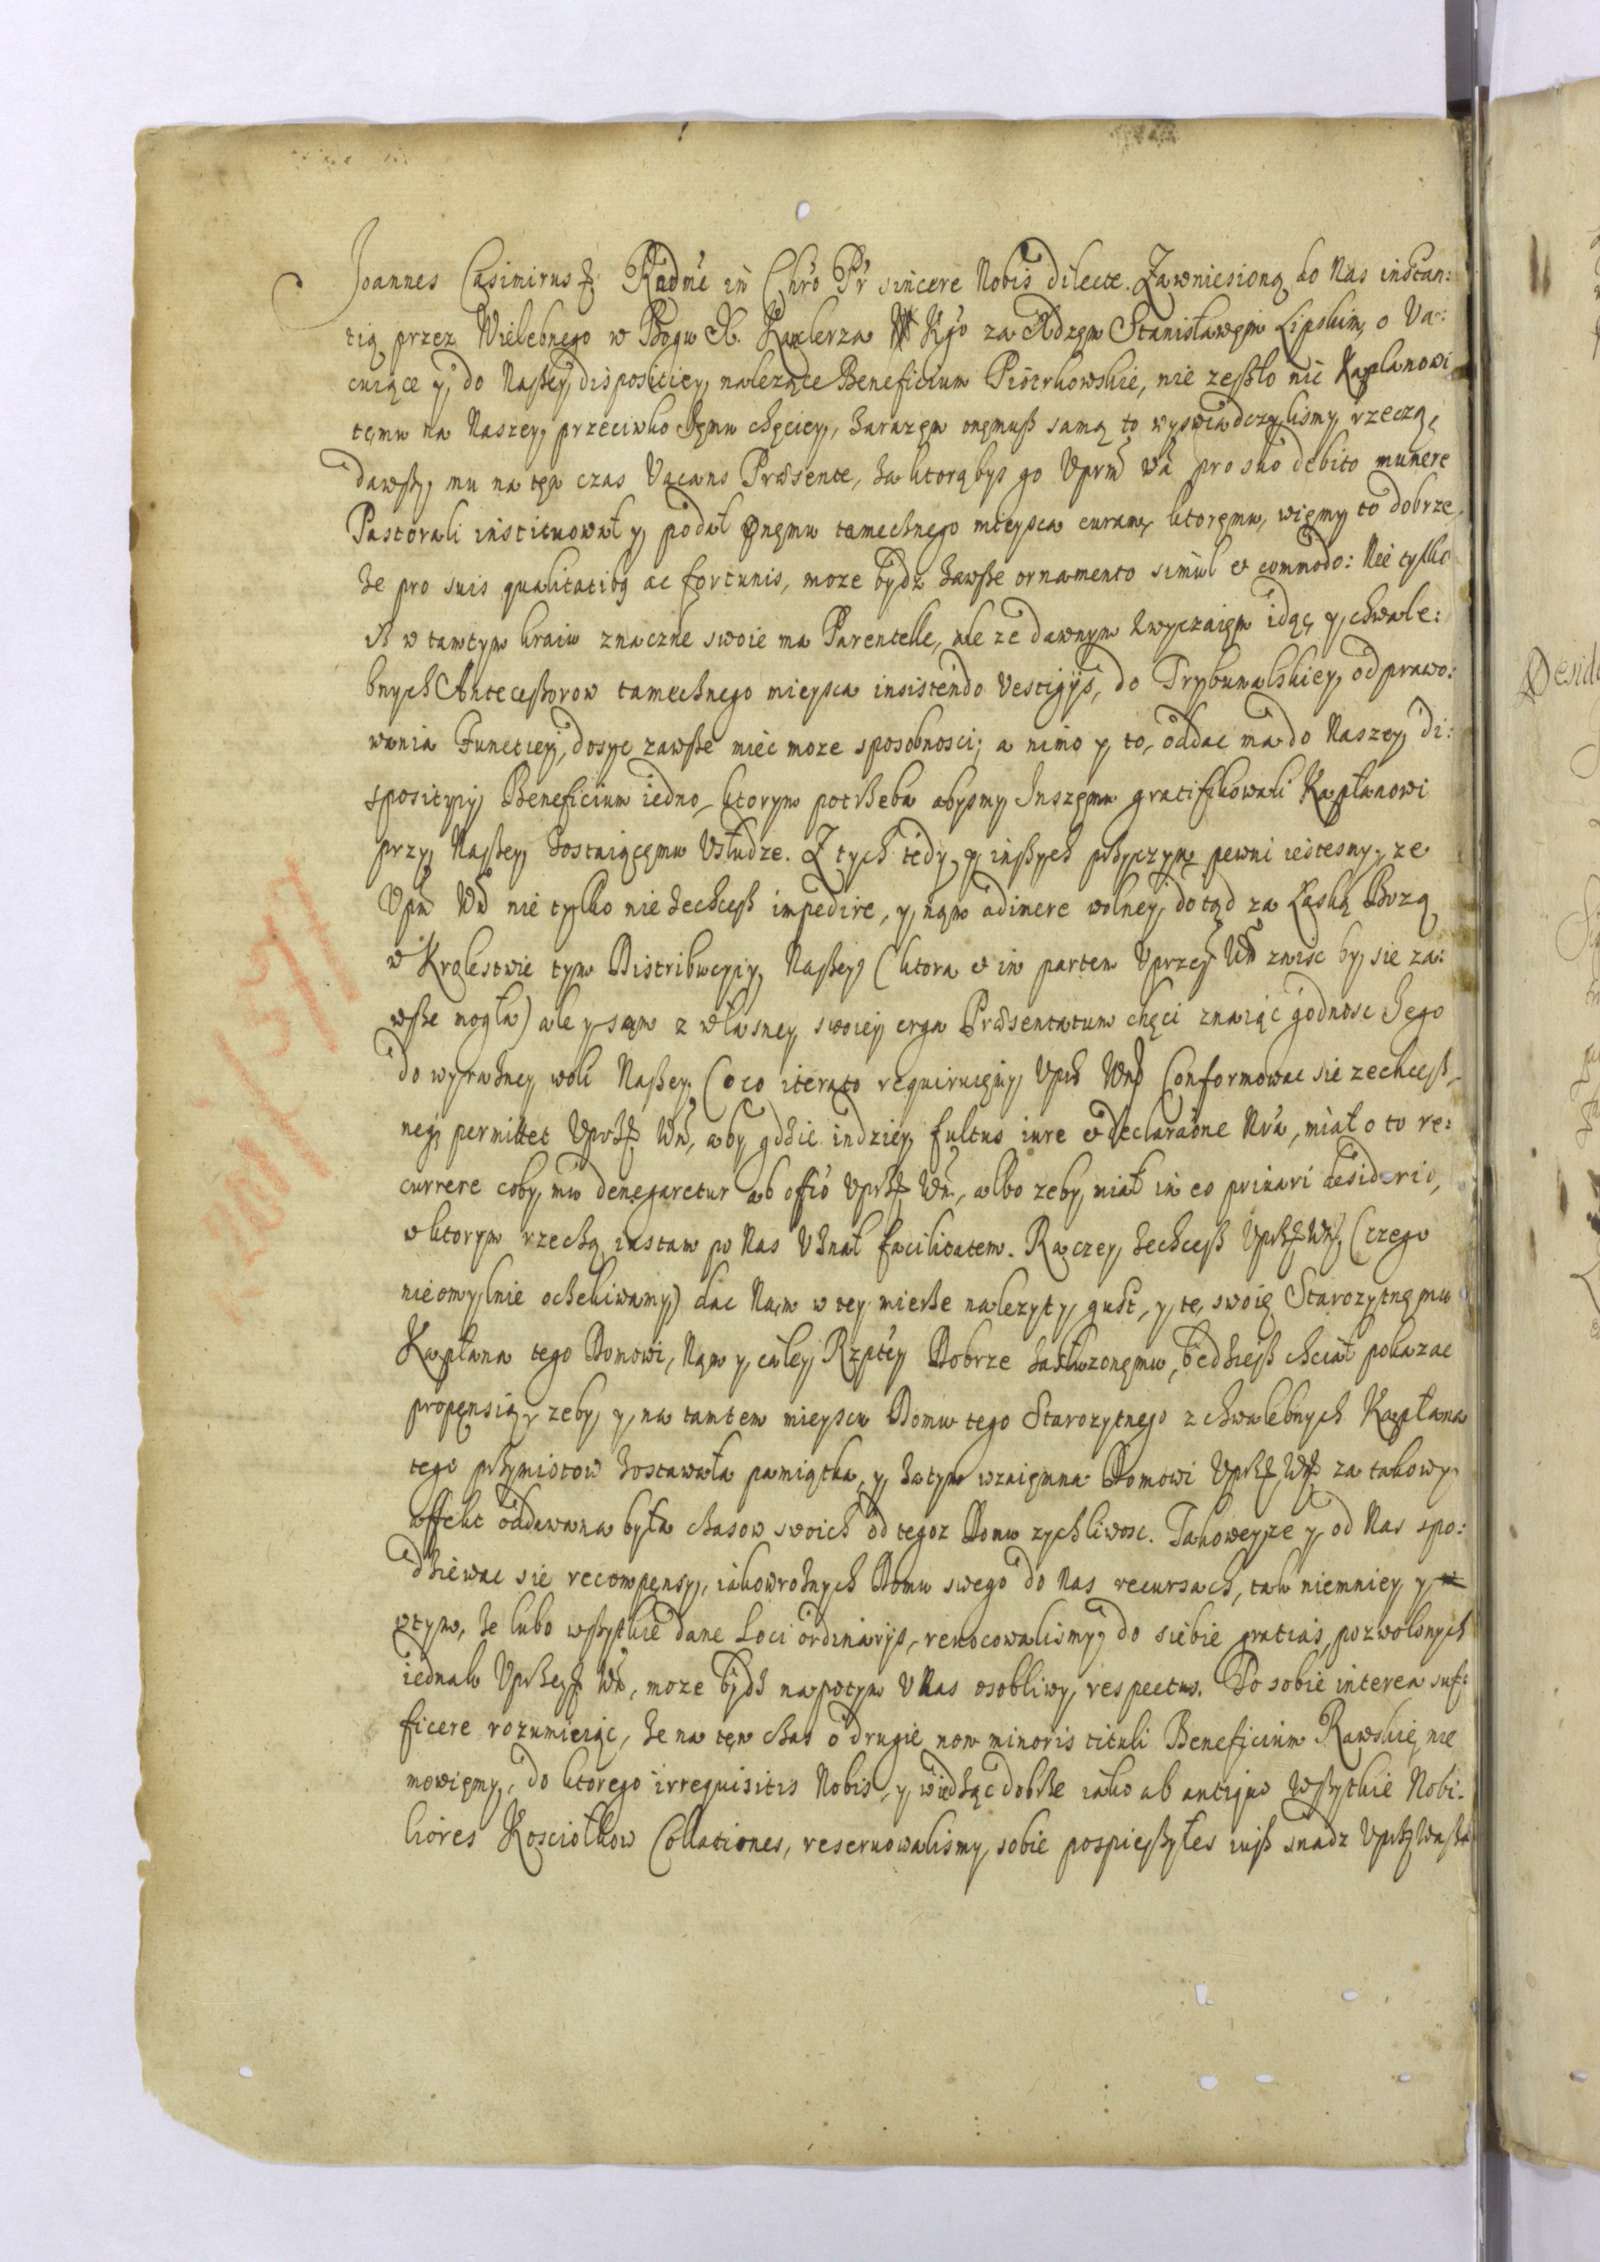 Joannes Casimirus Rndme in Chro Pr sincere Nobis dilecte. Zawniesioną do Nas instan:
tią przez Wielebnego w Bogu X. Kanclerza Kgo za Xdzem Stanisławem Lipskim, o Va:
cuiące y, do Naszey dispositiey nalezące Beneficium Piotrkowskie, nie zeszło nic Kapłanowi
temu na Naszey przeciwko Iemu chęciey, zarazem onemusz samą to wyswiadczylismy rzeczą,
dawszy mu na ten czas Vacans Præsente, za ktorąbys go Vprm Wa pro suo debito munere
Pastorali instituował y podał onemu tamecznego mieysca curam, ktoremu, wiemy to dobrze
ze pro suis qualitatibq ac fortunis, moze bydz zawsze ornamento simul et commodo: Nie tylko
isz w tamtym kraiu znaczne swoie ma Parentelle, ale ze dawnym zwyczaiem idąc y chwale:
bnych Antecessorow tamecznego mieysca insistendo Vestigijs, do Trybunalskiey odprawo:
wania Functiey, dosyc zawsze miec moze sposobnosci; a mimo y to, oddac ma do Naszey di:
spositiey Beneficium iedno, ktorym potrzeba abysmy Inszemu gratifikowali Kapłanowi
przy Naszey zostaiącemu Vsłudze. Z tych tedy y inszych przyczyn pewni iestesmy, ze
Vpm Wm nie tylko nie zechcesz impedire, y nam adimere wolney dotąd za Łaską Bozą
w Krolestwie tym Distribucyiy Naszey (ktora et in partem Vprzey Wm znisc by sie za:
wsze mogła) ale y sam z własney swoiey erga Præsentatum chęci znaiąc godnosc Jego
do wyrazney woli Naszey (o co iterato requiruiemy Vprz Wm) Conformowac sie zechcesz,
neq permittet Vprz Wm, aby gdzie indziey fultus iure et declaraone Nra, miał o to re:
currere coby mu denegaretur ab offio Vprz Wm, albo zeby miał in eo priuari desiderio,
w ktorym rzeczą iustam po Nas Vznał facilitatem. Raczey zechcesz Vprz Wm, (czego
nieomylnie oczekiwamy) dac Nam w tey mierze nalezyty gust, y te swoię Starozytnemu
Kapłana tego Domowi, Nam y całey Rzptey Dobrze zasłuzonemu, będziesz chciał pokazac
propensią, zeby y na tamtem mieyscu Domu tego Starozytnego z chwalebnych Kapłana
tego przymiotow zostawała pamiątka, y zatym wzaiemna Domowi Vprz Wm za takowy
affekt oddawana była czasow swoich od tegoz Domu zychliwosc. Takoweyze y od Nas spo:
dziewac sie recompensy, iakowroznych Domu swego do Nas recursach, tak niemniey y
wtym, ze lubo wszytkie dane Loci ordinarijs, reuocowalismy do siebie gratias, pozwolonych
iednak Vprzey Wm, moze bydz napotym V Nas osobliwy respectus. To sobie interea suf:
ficere rozumieiąc, ze na ten czas o drugie non minoris tituli Beneficium Rawskie nie
mowiemy, do ktorego irrequisitis Nobis, y wiedząc dobrze iako ab antiquo Wszytkie Nobi:
liores Kosciołkow Collationes, reseruowalismy sobie pospieszyłes iusz snadz Vprz Wasza